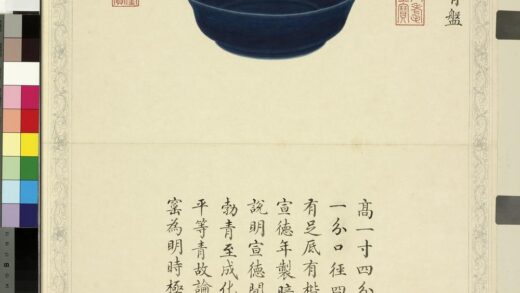 青盤
高一寸四分
一分口徑四
有足底有楷
宣德年製暗
說明宣德間
勃青至成化
平等青故論
窯為明時極